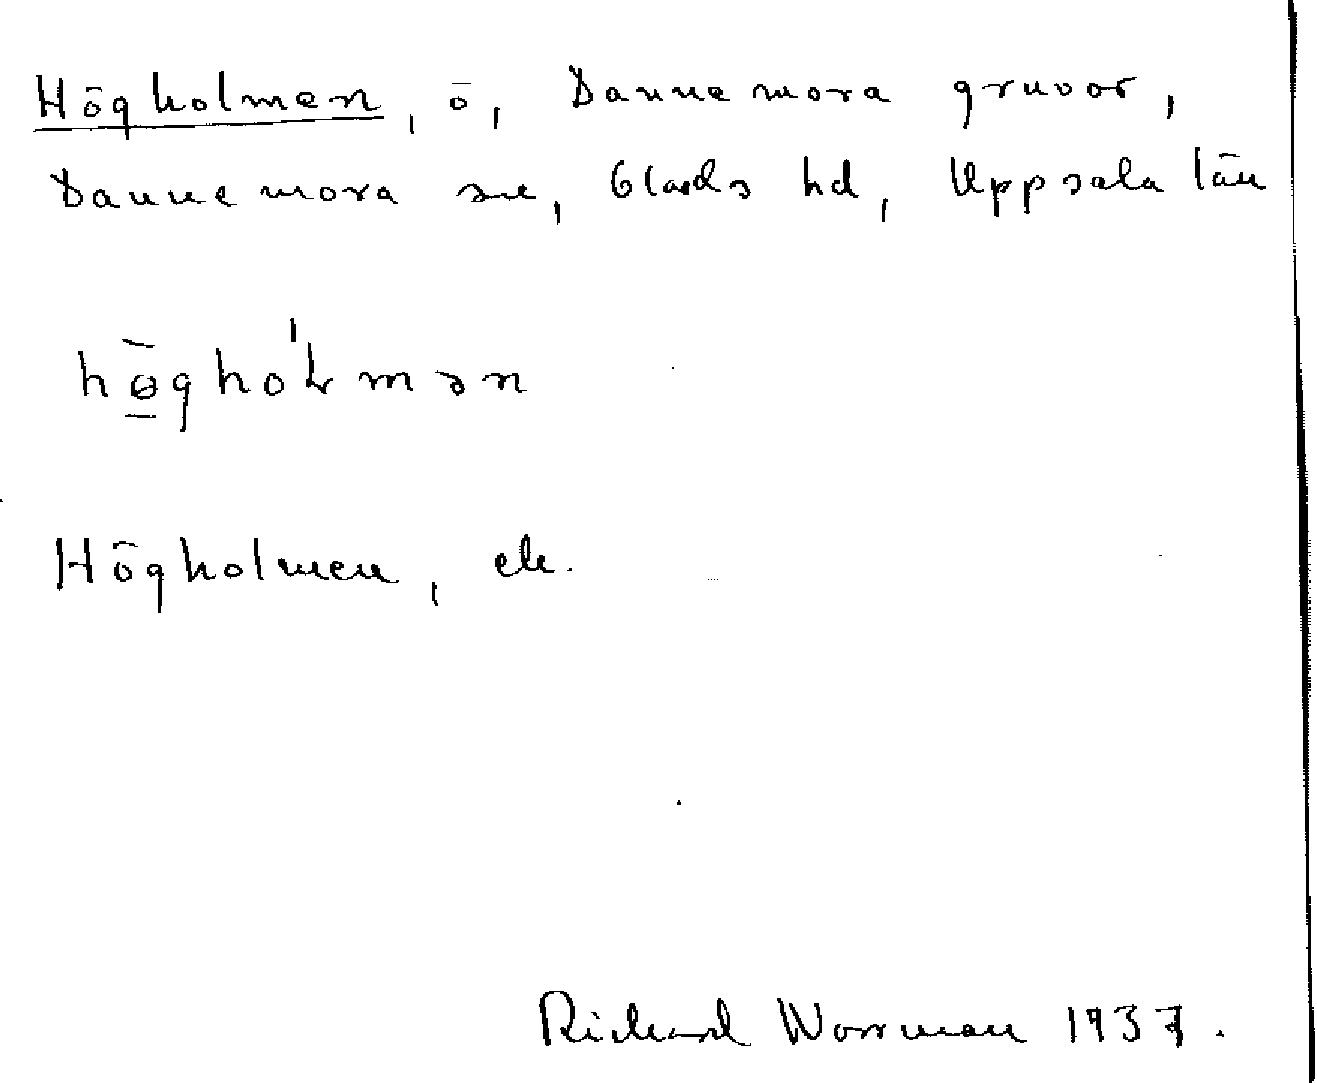 Högholmen, ö, Dannemora gruvor,
Dannemora sn, Olands hd, Uppsala län
hø̱̄gho'ɫmən
Högholmen, ek.
Richard Worrman 1937.